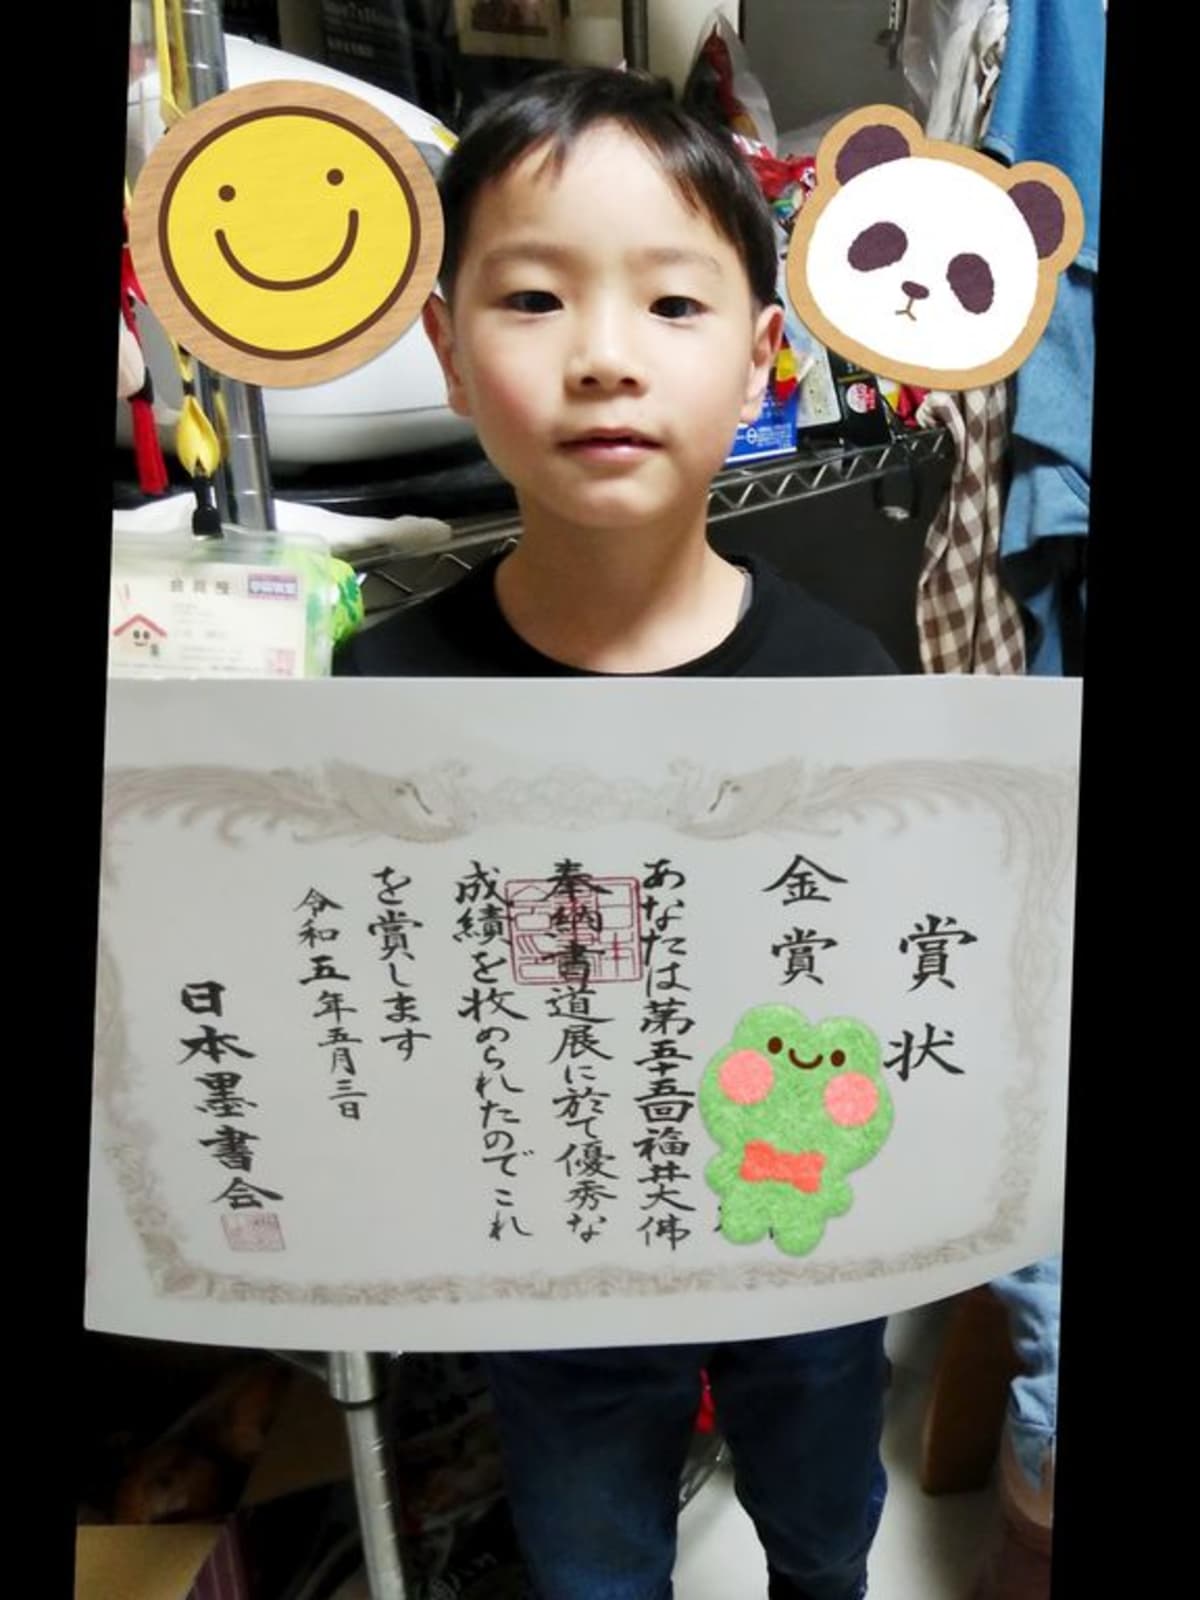 会員証
賞状
金賞
あなたは第五十五回福井大佛
奉納書道展に於て優秀な
成績を收められたのでこれ
を賞します
令和五年五月三日
日本墨書会